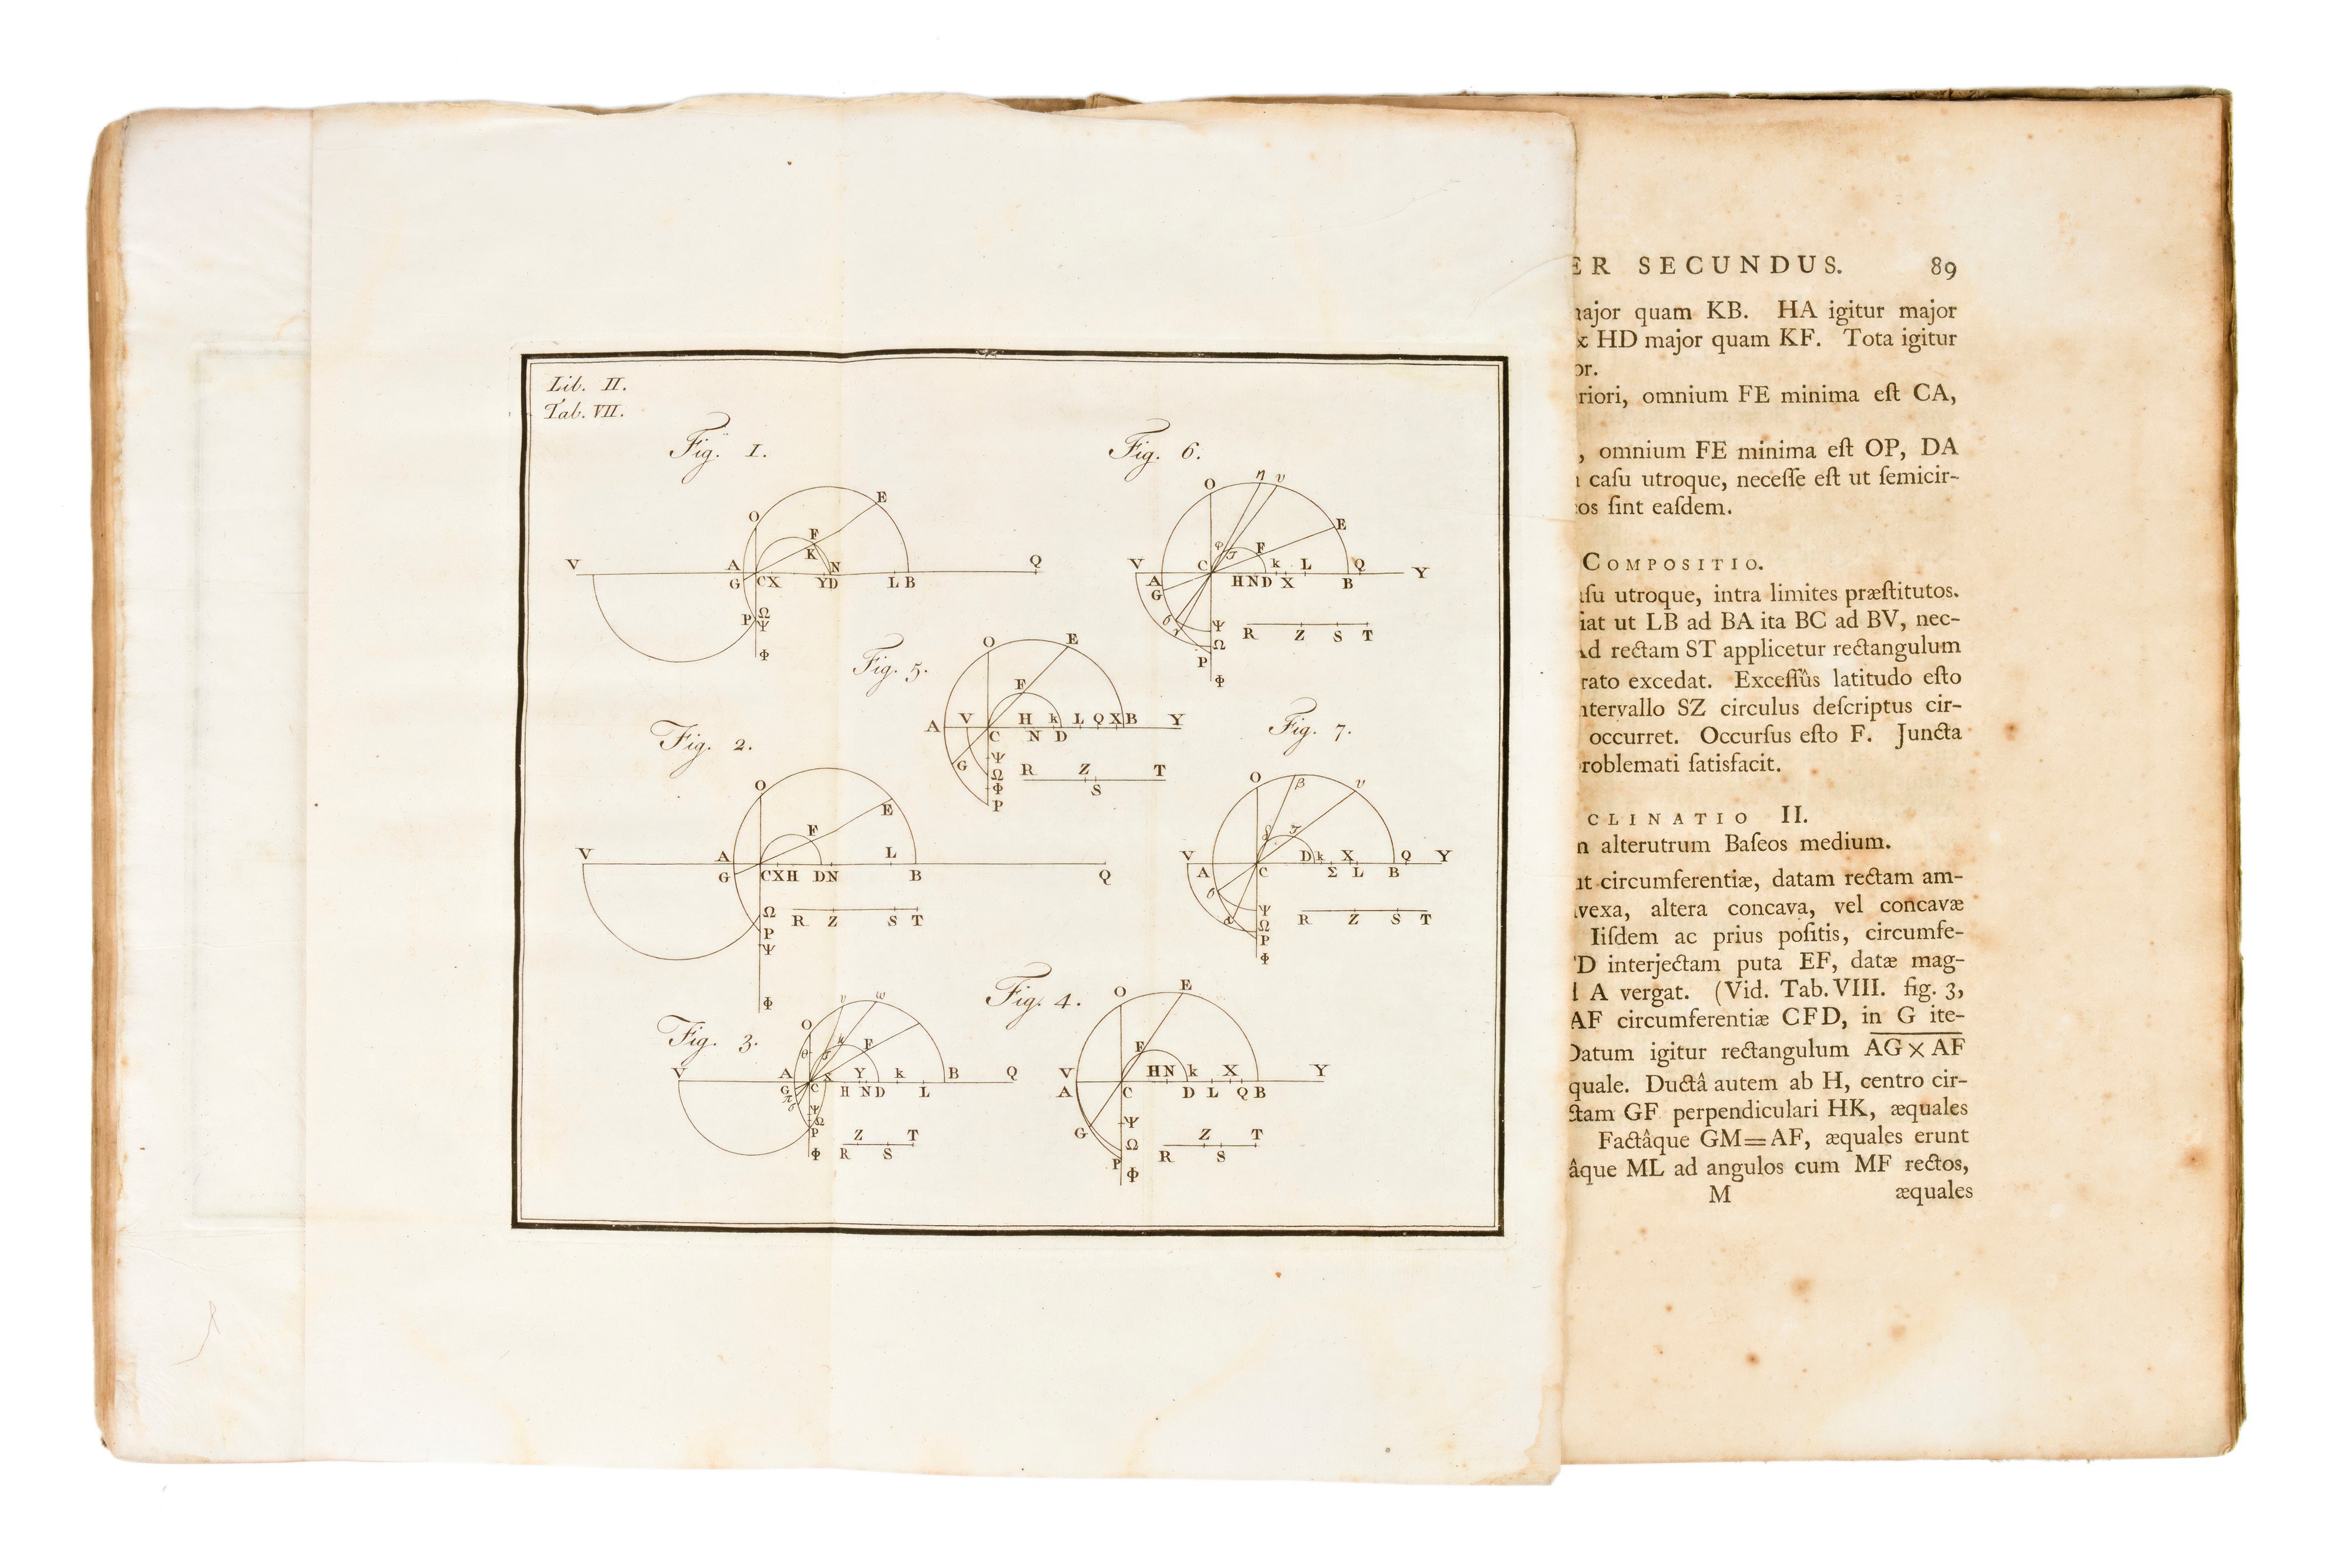 Lib. II.
Tab. VII.
Fig. 1.
E
O
F
K
V A N Q
G C X Y D L B
P Ω
Ψ
Φ
Fig. 6.
η υ
O
E
F
V C k L Q Y
A H N D X B
G
Ψ R Z S T
Ω
P
Φ
Fig. 5.
O E
F
A V H k L Q X B Y
C N D
G Ψ R Z T
Ω S
Φ
P
Fig. 2.
O
E
F
V A L
G C X H D N B Q
Ω
P R Z S T
Ψ
Φ
Fig. 7.
O β υ
V D k X Q Y
A C Σ L B
Ψ
Ω R Z S T
P
Φ
Fig. 3.
υ ω
O
F
V A Y k B Q
G C H N D L
Ψ
Ω
P Z T
Φ R S
Fig. 4.
O E
F
V H N k X Y
A C D L Q B
Ψ
G Ω Z T
P R S
Φ
ER SECUNDUS. 89
major quam KB. HA igitur major
& HD major quam KF. Tota igitur
or.
riori, omnium FE minima eſt CA,
, omnium FE minima eſt OP, DA
caſu utroque, neceſſe eſt ut ſemicir-
cos ſint eaſdem.
COMPOSITIO.
aſu utroque, intra limites præſtitutos.
iat ut LB ad BA ita BC ad BV, nec-
Ad rectam ST applicetur rectangulum
rato excedat. Exceſſûs latitudo eſto
ntervallo SZ circulus deſcriptus cir-
occurret. Occurſus eſto F. Juncta
roblemati ſatisfacit.
CLINATIO II.
n alterutrum Baſeos medium.
ut circumferentiæ, datam rectam am-
vexa, altera concava, vel concavæ
Iiſdem ac prius poſitis, circumfe-
D interjectam puta EF, datæ mag-
A vergat. (Vid. Tab. VIII. fig. 3,
AF circumferentiæ CFD, in G ite-
Datum igitur rectangulum AG × AF
quale. Ductâ autem ab H, centro cir-
ctam GF perpendiculari HK, æquales
Factâque GM=AF, æquales erunt
âque ML ad angulos cum MF rectos,
M æquales